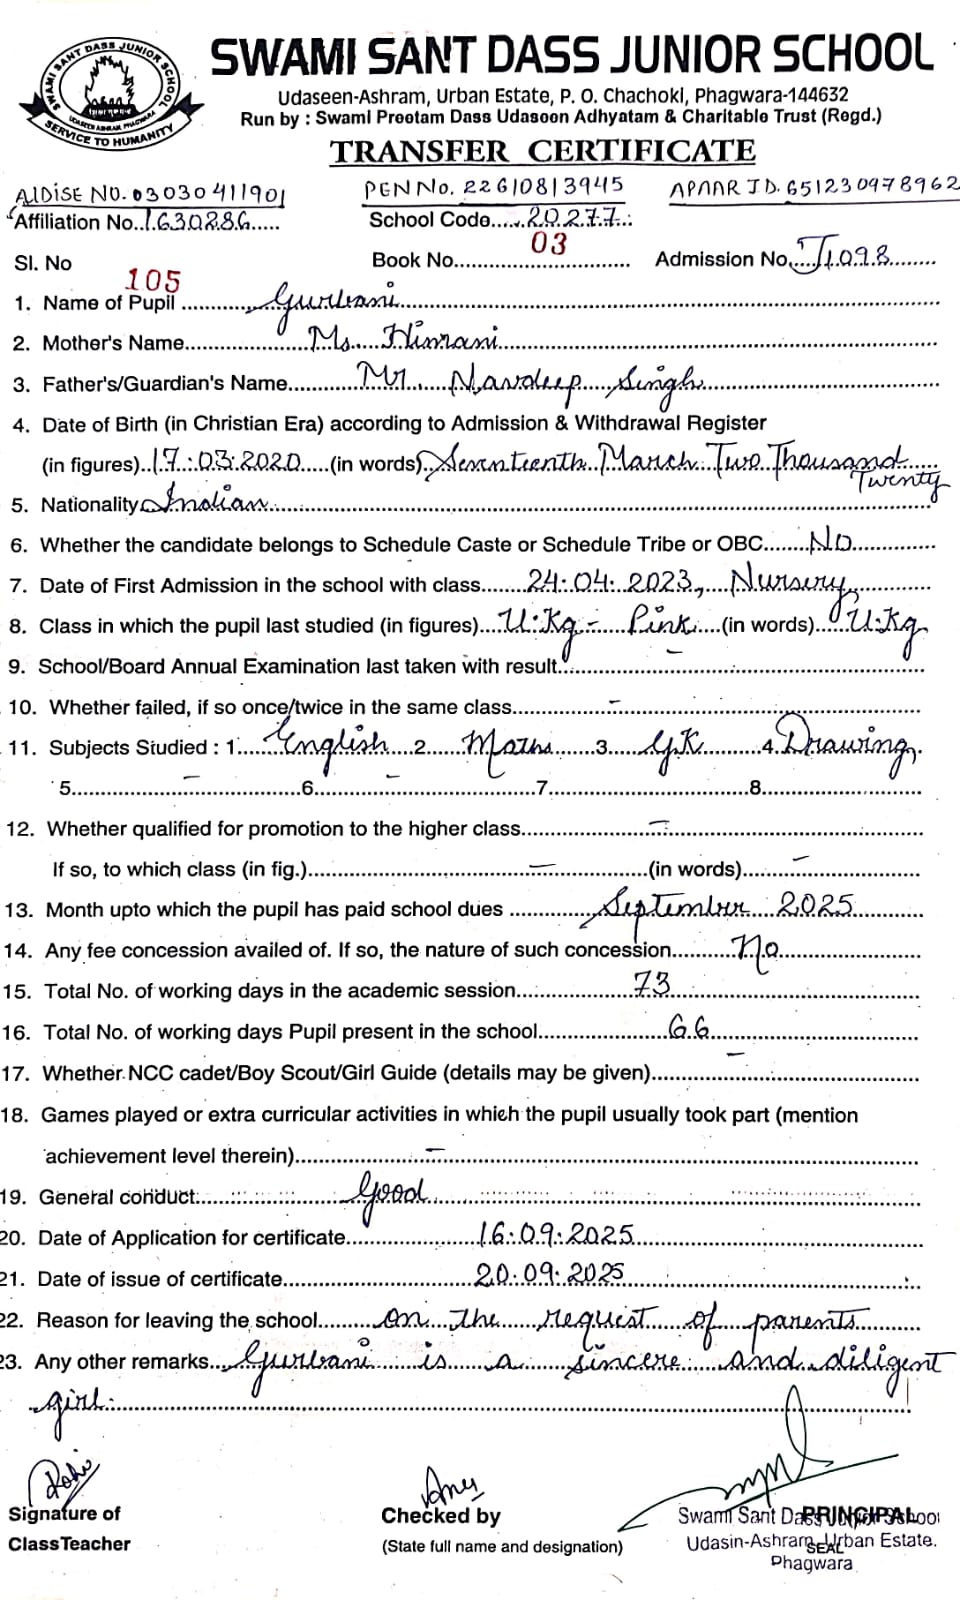 SWAMI SANT DASS JUNIOR SCHOOL
SWAMI SANT DASS JUNIOR SCHOOL
UDASEEN ASHRAM, PHAGWARA
SERVICE TO HUMANITY
Udaseen-Ashram, Urban Estate, P. O. Chachoki, Phagwara-144632
Run by : Swami Preetam Dass Udaseen Adhyatam & Charitable Trust (Regd.)
TRANSFER CERTIFICATE
AIDISE NO. 03030411901 PEN No. 22610813945 APAAR ID. 651230978962
Affiliation No. 1630286 School Code 20277
Sl. No 105 Book No. 03 Admission No. J1098
1. Name of Pupil Gurbani
2. Mother's Name Ms. Himani
3. Father's/Guardian's Name Mr. Navdeep Singh
4. Date of Birth (in Christian Era) according to Admission & Withdrawal Register
(in figures) 17:03:2020 (in words) Seventeenth March Two Thousand
Twenty
5. Nationality Indian
6. Whether the candidate belongs to Schedule Caste or Schedule Tribe or OBC No
7. Date of First Admission in the school with class 24:04:2023, Nursery
8. Class in which the pupil last studied (in figures) U.Kg - Pink (in words) U.Kg
9. School/Board Annual Examination last taken with result -
10. Whether failed, if so once/twice in the same class -
11. Subjects Studied : 1. English 2 Maths 3 GK 4 Drawing
5 - 6 - 7 8
12. Whether qualified for promotion to the higher class -
If so, to which class (in fig.) - (in words) -
13. Month upto which the pupil has paid school dues September 2025
14. Any fee concession availed of. If so, the nature of such concession No
15. Total No. of working days in the academic session 73
16. Total No. of working days Pupil present in the school 66
17. Whether NCC cadet/Boy Scout/Girl Guide (details may be given) -
18. Games played or extra curricular activities in which the pupil usually took part (mention
achievement level therein) -
19. General conduct Good
20. Date of Application for certificate 16:09:2025
21. Date of issue of certificate 20:09:2025
22. Reason for leaving the school On the request of parents
23. Any other remarks Gurbani is a sincere and diligent
girl.
Signature of Checked by PRINCIPAL
Swami Sant Dass
Class Teacher (State full name and designation) SEAL
Udasin-Ashram, Urban Estate.
Phagwara